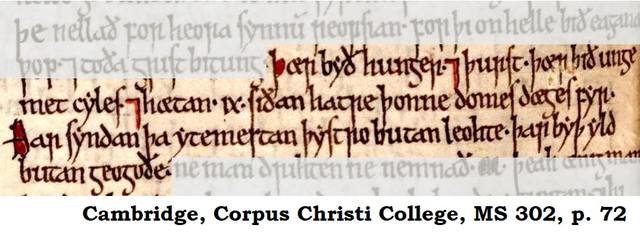 þe nellað for heora synnū hreofsian. for þi on helle bið eagan
wop. ⁊ toða gristbitung. Þær byð hunger. ⁊ þurst. þær bið unge
met cyles. ⁊ hætan. ix. siðan hatre þonne domes dæges fyr.
Þar syndan þa ytemestan þystro butan leohte. þar byþ yld
butan geogoðe. ne man drihten ne nemnað.
Cambridge, Corpus Christi College, MS 302, p. 72